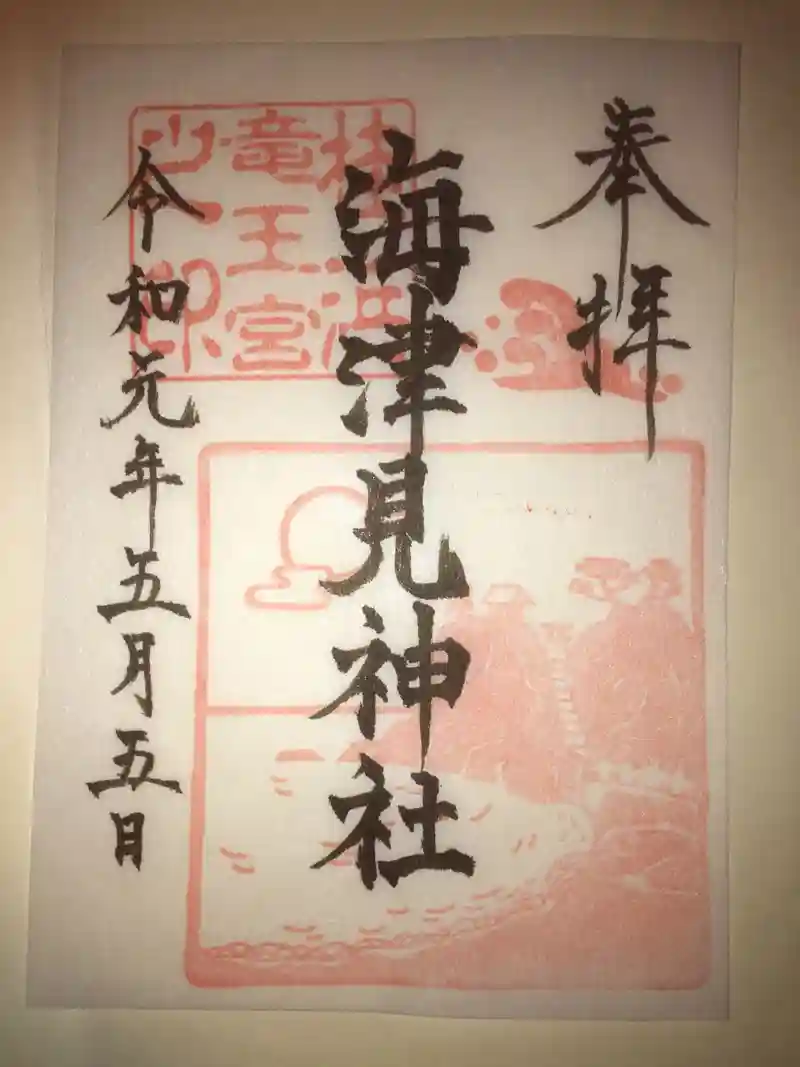 奉拝
海津見神社
桂浜
竜王宮
之印
令和元年五月五日